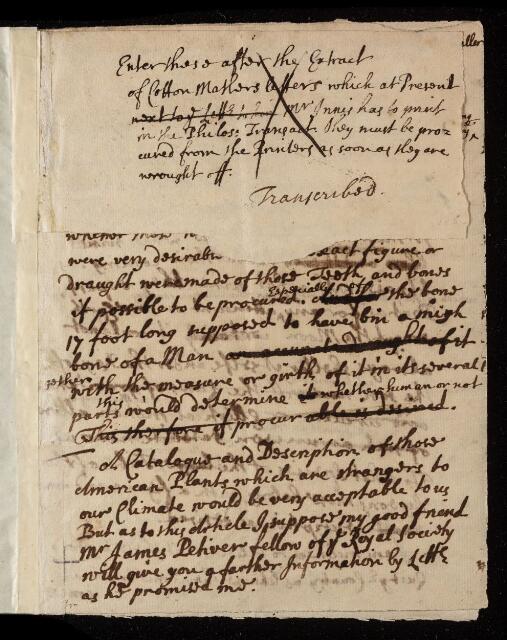 Enter these after the Extract
of Cotton Mathers letters which at Present
next to y Mr Innis has to print
in the Philos: Transact. They must be pro=
cured from the Printers as soon as they are
wrought off.
Transcribed.
were very desirabl exact figure or
draught were made of those Teeth, and bones
if possible to be procured. Especially of the bone
17 foot long supposed to have bin a thigh
bone of a Man of it
together with the measure or girth of it in its several
parts this would determine it whether human or not
This therefore if procurable is desired.
A Catalogue and Description of those
American Plants which are strangers to
our Climate would be very acceptable to us
But as to this Article I suppose my good friend
Mr James Petiver fellow of ye Royal Society
will give you a farther Information by Lettr
as he promised me.